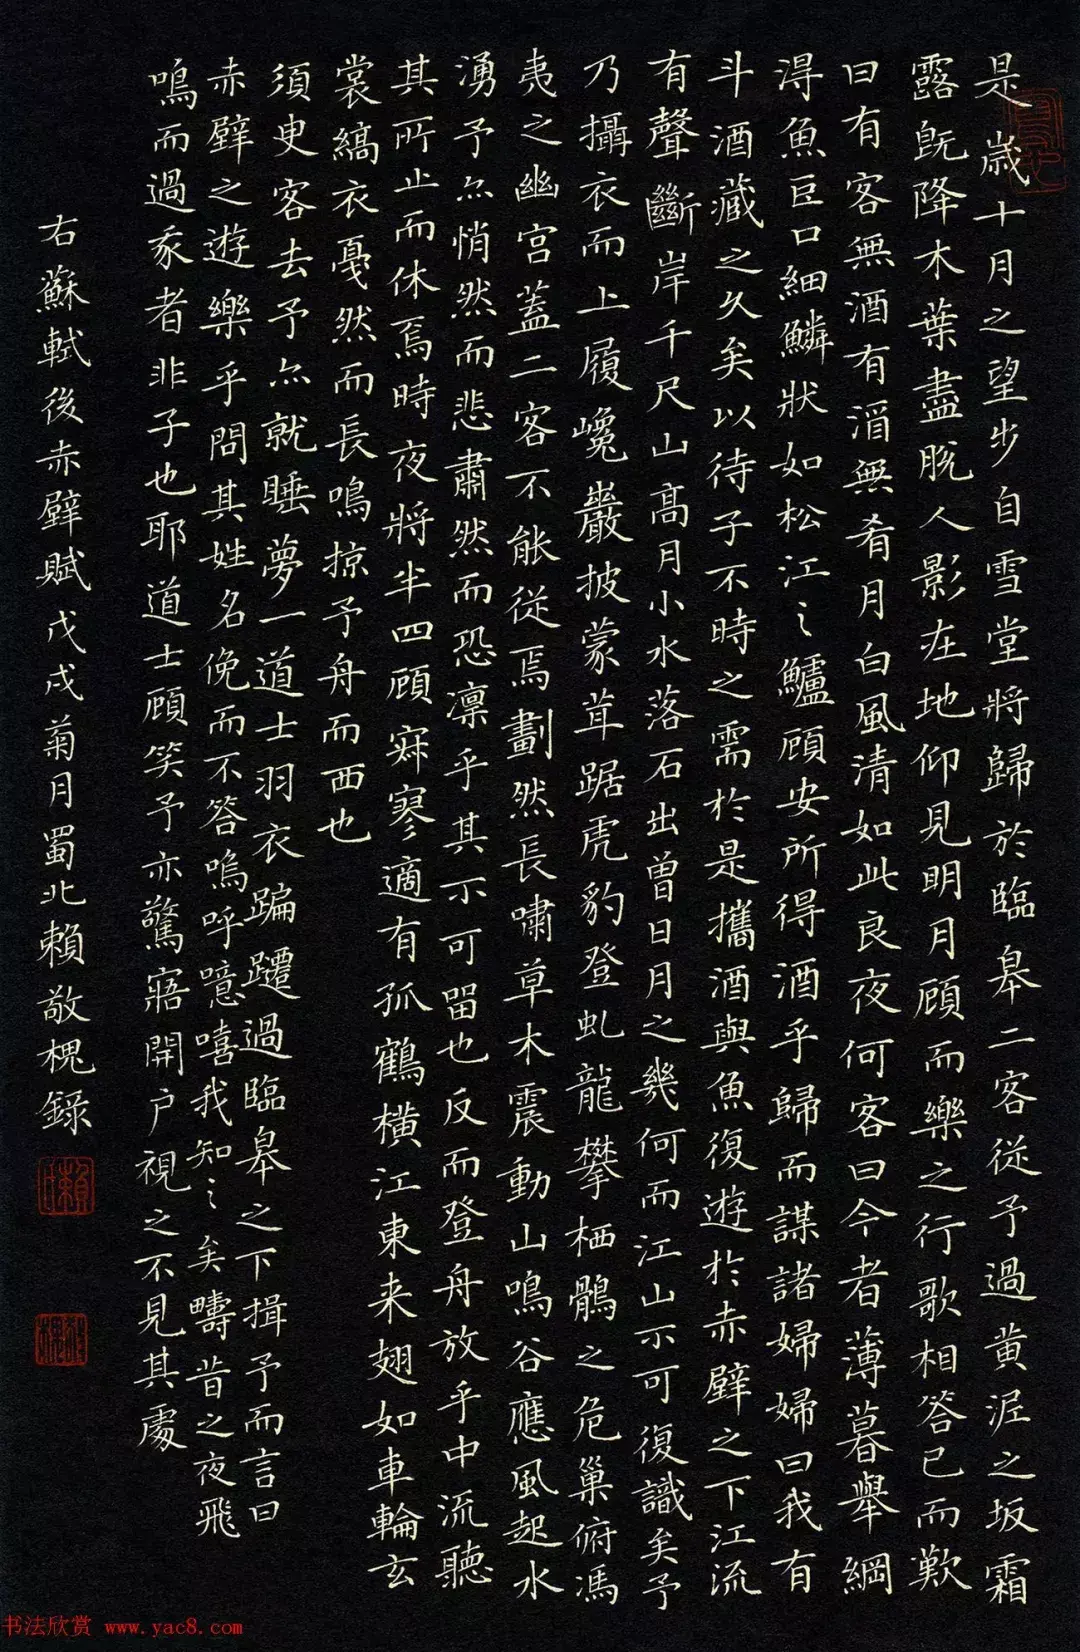 是歲十月之望步自雪堂將歸於臨皋二客從予過黃泥之坂霜
露既降木葉盡脫人影在地仰見明月顧而樂之行歌相答已而歎
曰有客無酒有酒無肴月白風清如此良夜何客曰今者薄暮舉網
得魚巨口細鱗狀如松江之鱸顧安所得酒乎歸而謀諸婦婦曰我有
斗酒藏之久矣以待子不時之需於是攜酒與魚復遊於赤壁之下江流
有聲斷岸千尺山高月小水落石出曾日月之幾何而江山不可復識矣予
乃攝衣而上履巉巖披蒙茸踞虎豹登虬龍攀栖鶻之危巢俯馮
夷之幽宮蓋二客不能從焉劃然長嘯草木震動山鳴谷應風起水
湧予亦悄然而悲肅然而恐凛乎其不可留也反而登舟放乎中流聽
其所止而休焉時夜將半四顧寂寥適有孤鶴橫江東来翅如車輪玄
裳縞衣戞然而長鳴掠予舟而西也
須臾客去予亦就睡夢一道士羽衣蹁躚過臨皋之下揖予而言曰
赤壁之遊樂乎問其姓名俛而不答嗚呼噫嘻我知之矣疇昔之夜飛
鳴而過我者非子也耶道士顧笑予亦驚寤開户視之不見其處
右蘇軾後赤壁賦戊戌菊月蜀北賴敬槐錄
书法欣赏 www.yac8.com